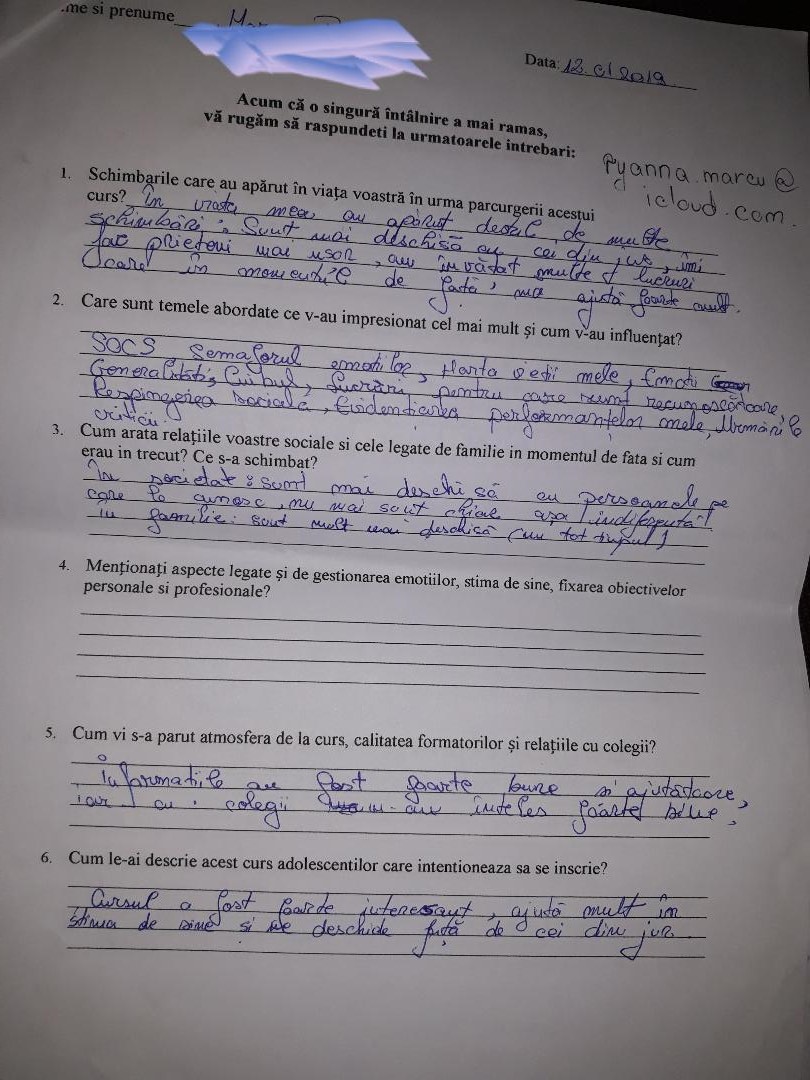 me si prenume
Data: 12.01 2019
Acum că o singură întâlnire a mai ramas,
vă rugăm să raspundeti la urmatoarele intrebari:
Pyanna.marcu@
icloud.com.
1. Schimbarile care au apărut în viața voastră în urma parcurgerii acestui
curs? În viața mea au apărut destul de multe
schimbări: Sunt mai deschisă cu cei din jur, îmi
fac prieteni mai ușor, am învățat multe lucruri
care în momentul de față, mă ajută foarte mult.
2. Care sunt temele abordate ce v-au impresionat cel mai mult și cum v-au influențat?
SOCS Semaforul emoțiilor, Harta vieții mele, Emoții
Generalități, Cuibul, Lucrări pentru care sunt recunoscătoare,
Respingerea socială, Evidențierea performanțelor mele, Urmările
criticii.
3. Cum arata relațiile voastre sociale si cele legate de familie in momentul de fata si cum
erau in trecut? Ce s-a schimbat?
În societate: sunt mai deschisă cu persoanele pe
care le cunosc, nu mai sunt chiar așa indiferentă!
În familie: sunt mult mai deschisă (nu tot timpul)
4. Menționați aspecte legate și de gestionarea emotiilor, stima de sine, fixarea obiectivelor
personale si profesionale?
5. Cum vi s-a parut atmosfera de la curs, calitatea formatorilor și relațiile cu colegii?
Informatiile au fost foarte bune și ajutătoare,
iar cu colegii m-am înțeles foarte bine.
6. Cum le-ai descrie acest curs adolescentilor care intentioneaza sa se inscrie?
Cursul a fost foarte interesant, ajută mult în
stima de sine si te deschide față de cei din jur